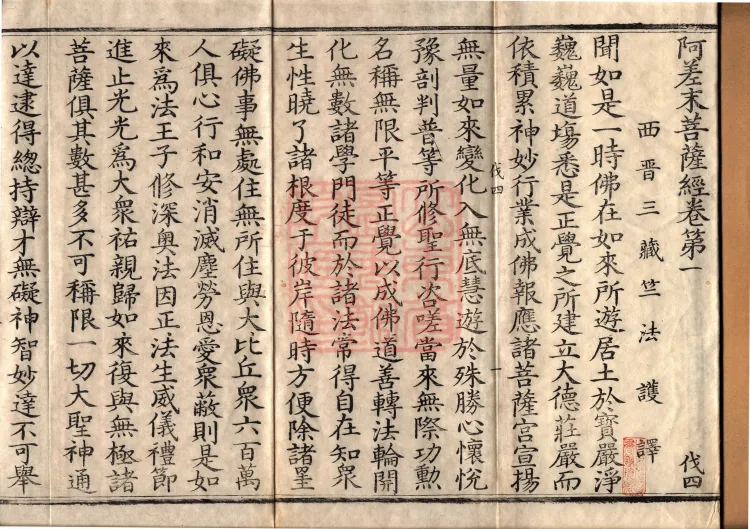 阿差末菩薩經卷第一 伐四
西晋三藏竺法護譯
聞如是一時佛在如來所遊居土於寶嚴淨
巍巍道場悉是正覺之所建立大德莊嚴而
依積累神妙行業成佛報應諸菩薩宮宣揚
伐四 一
無量如來變化入無底慧遊於殊勝心懷悅
豫剖判普等所修聖行咨嗟當來無際功勲
名稱無限平等正覺以成佛道善轉法輪開
化無數諸學門徒而於諸法常得自在知衆
生性曉了諸根度于彼岸隨時方便除諸罣
礙佛事無處住無所住與大比丘衆六百萬
人俱心行和安消滅塵勞恩愛衆蔽則是如
來爲法王子修深奧法因正法生威儀禮節
進止光光爲大衆祐親歸如來復與無極諸
菩薩俱其數甚多不可稱限一切大聖神通
以達逮得總持辯才無礙神智妙達不可舉